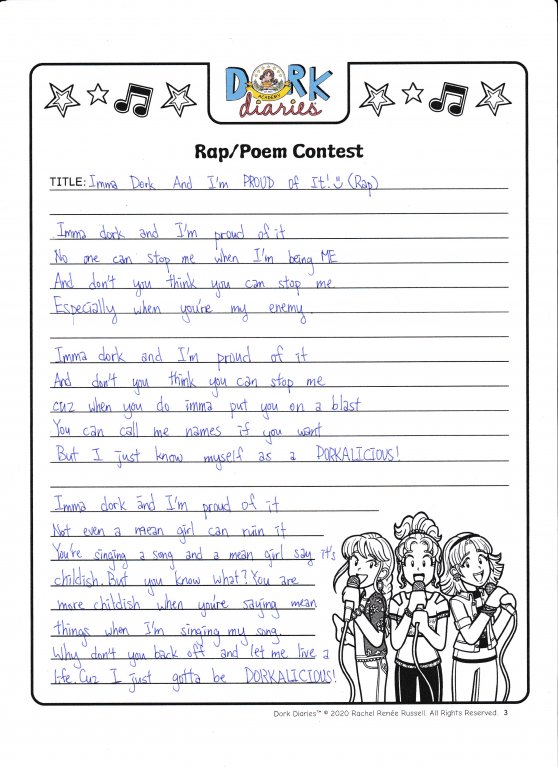 DORK
ACADEMY
diaries
Rap/Poem Contest
TITLE: Imma Dork And I'm PROUD of It! (Rap)
Imma dork and I'm proud of it
No one can stop me when I'm being ME
And don't you think you can stop me
Especially when you're my enemy.
Imma dork and I'm proud of it
And don't you think you can stop me
cuz when you do imma put you on a blast
You can call me names if you want
But I just know myself as a DORKALICIOUS!
Imma dork and I'm proud of it
Not even a mean girl can ruin it
You're singing a song and a mean girl say it's
childish. But you know what? You are
more childish when you're saying mean
things when I'm singing my song.
Why don't you back off and let me live a
life. Cuz I just gotta be DORKALICIOUS!
Dork Diaries™ © 2020 Rachel Renée Russell. All Rights Reserved. 3